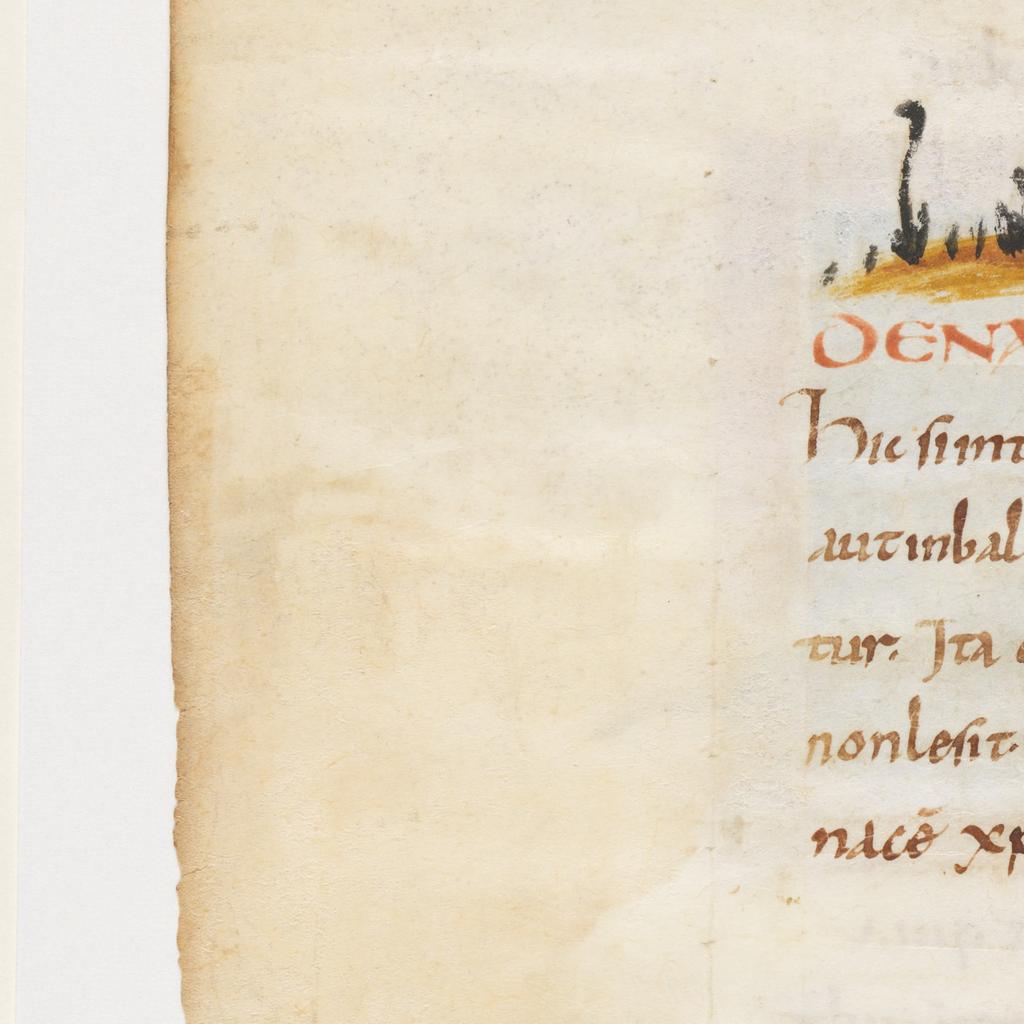 DENA
Hic sunt
aut inbal
tur. Ita
non lesit.
nacē xp